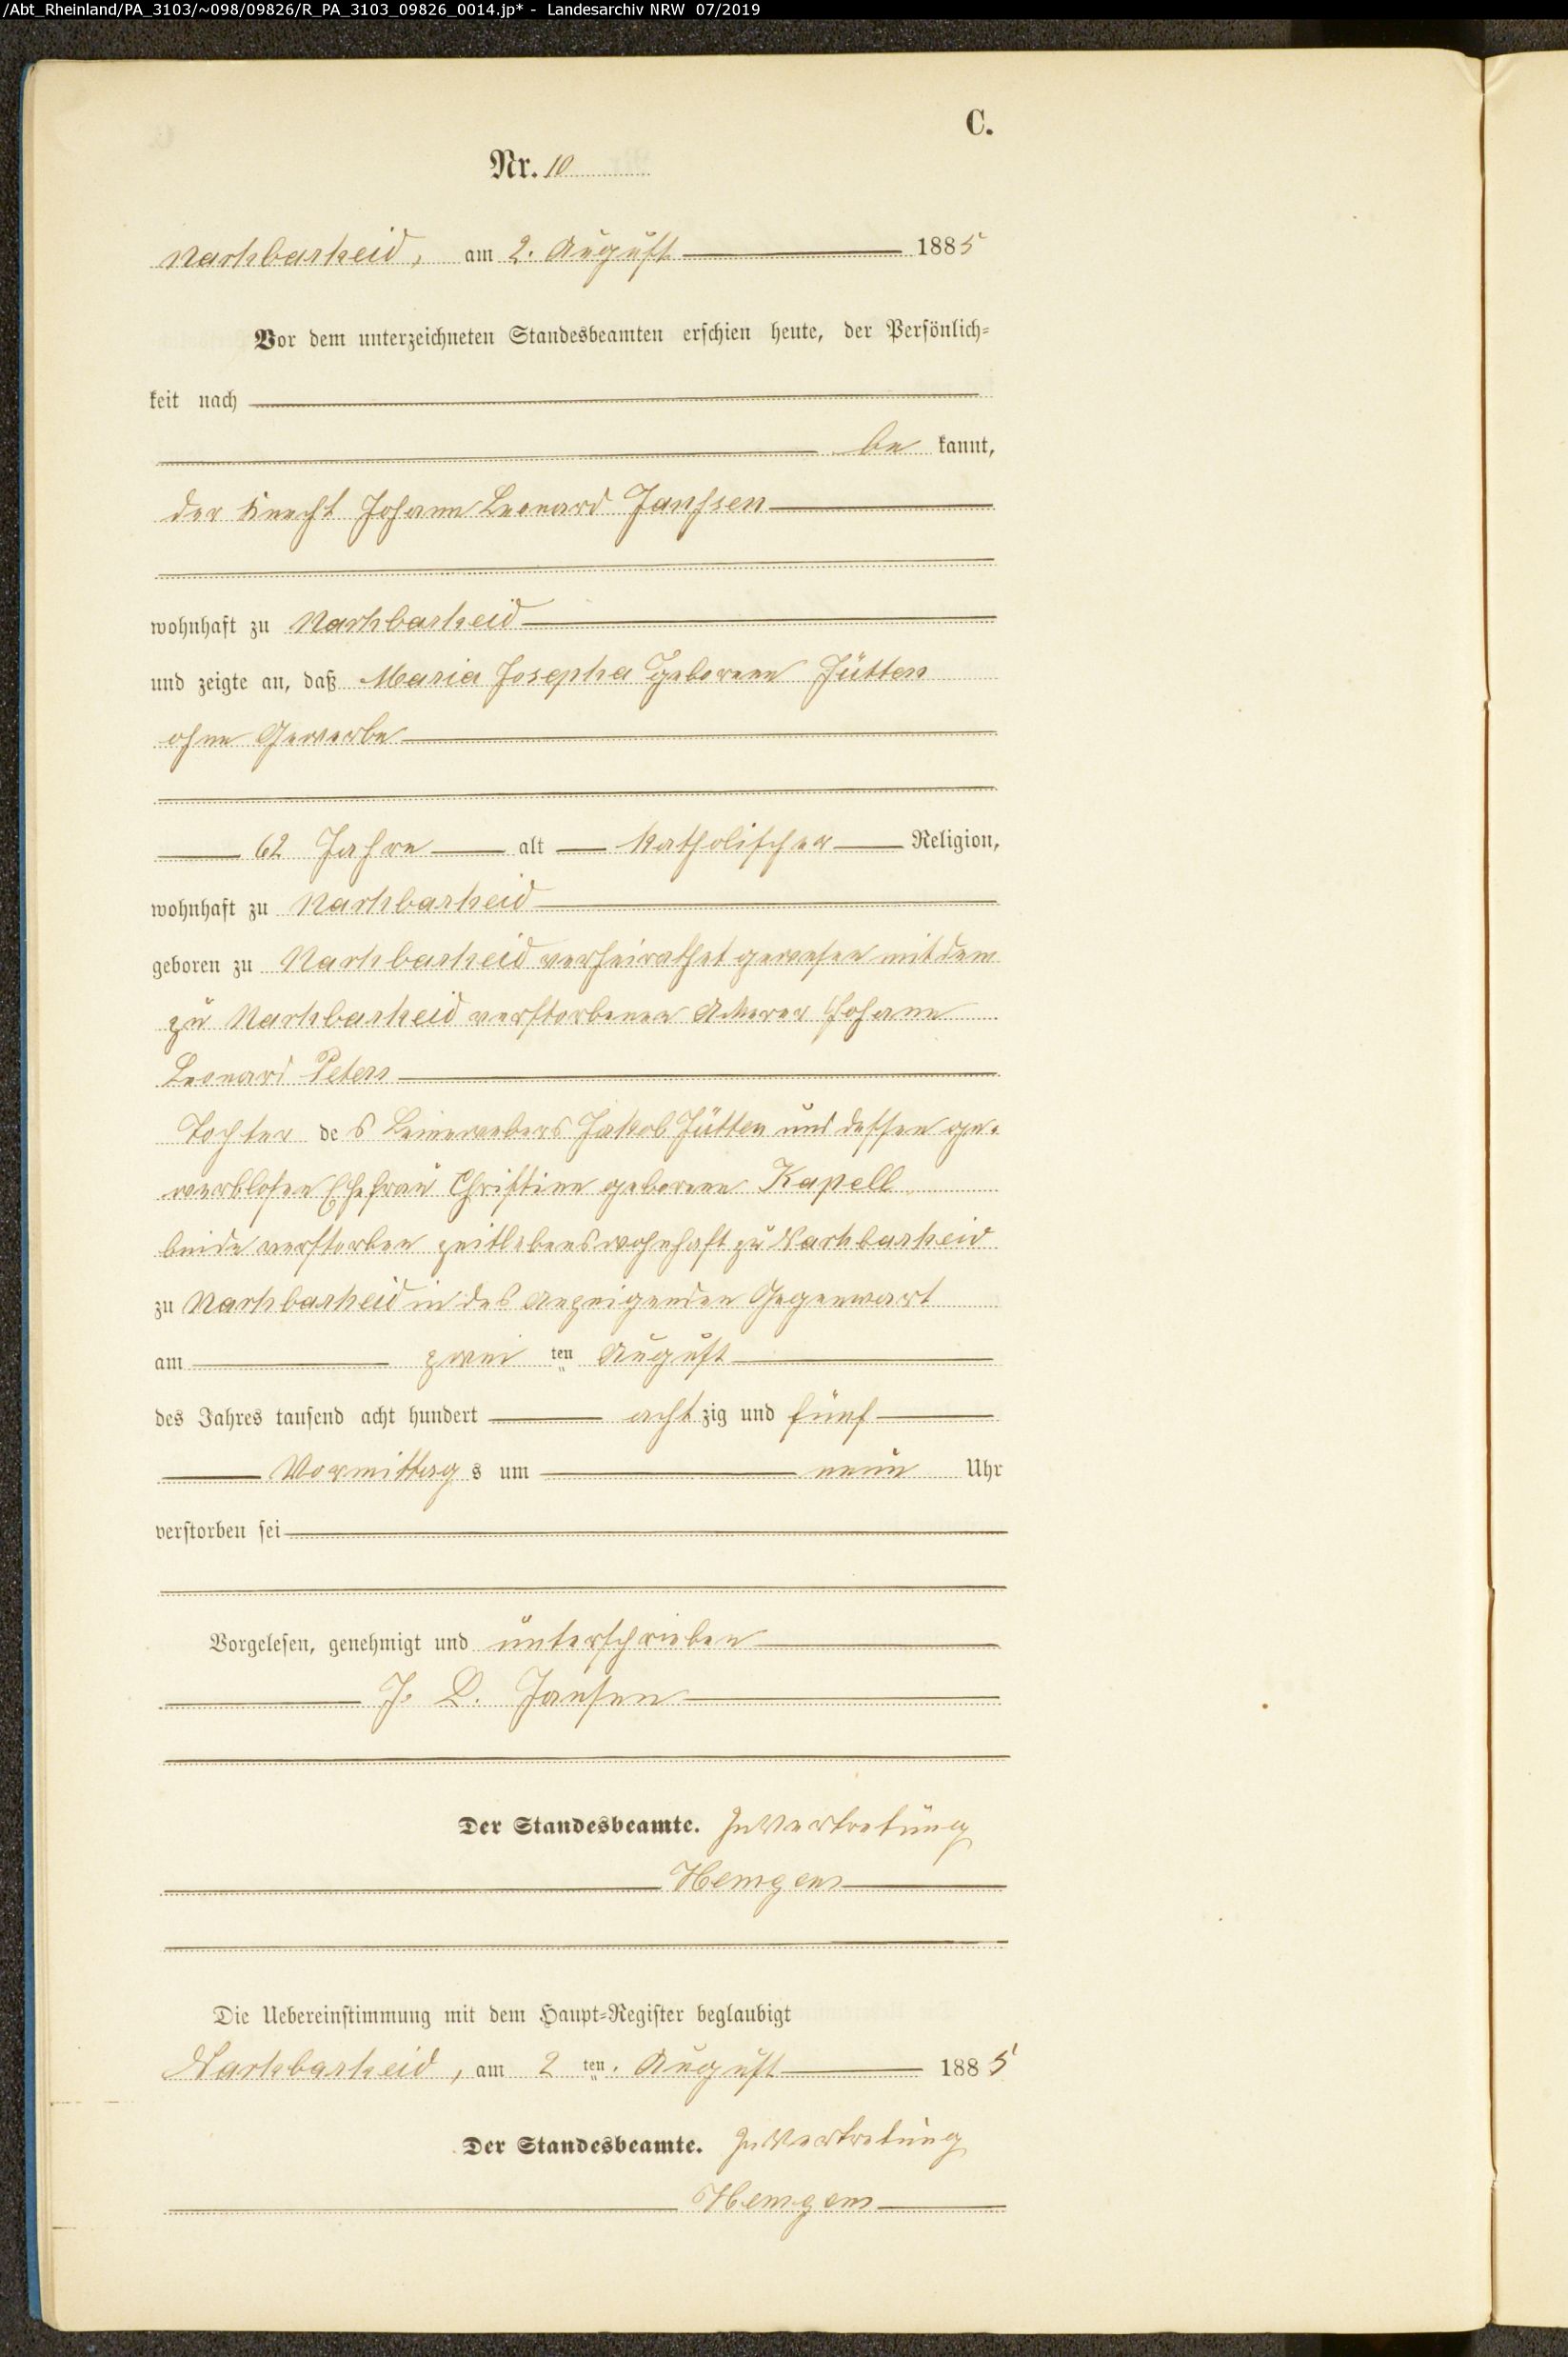 /Abt_Rheinland/PA_3103/~098/09826/R_PA_3103_09826_0014.jp* - Landesarchiv NRW 07/2019
C.
Nr. 10
Markbarheid, am 2. August 1885
Vor dem unterzeichneten Standesbeamten erschien heute, der Persönlich-
keit nach
be kannt,
der Knecht Johann Leonard Janssen
wohnhaft zu Narhbarheid
und zeigte an, daß Maria Josepha geborene Jütten
ohne Gewerbe
62 Jahre alt katholischer Religion,
wohnhaft zu Narhbarheid
geboren zu Narhbarheid verheirathet gewesen mit dem
zu Narhbarheid verstorbenen Ackerer Johann
Leonard Peters
Tochter des Leinewebers Jakob Jütten und dessen ge-
werblosen Ehefrau Christine geborene Kapell
beide verstorben zeitlebens wohnhaft zu Narhbarheid
zu Narhbarheid in des Anzeigenden Gegenwart
am zwei ten August
des Jahres tausend acht hundert achtzig und fünf
Vormittags um neun Uhr
verstorben sei
Vorgelesen, genehmigt und unterschrieben
J. L. Jansen
Der Standesbeamte. In Vertretung
Hemgens
Die Uebereinstimmung mit dem Haupt-Register beglaubigt
Narhbarheid, am 2 ten. August 1885
Der Standesbeamte. In Vertretung
Hemgens